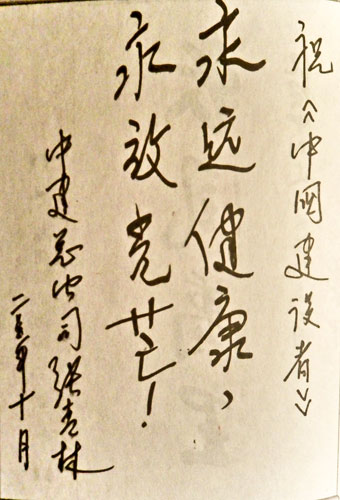 祝《中國建设者》
永远健康，
永放光芒！
中建总公司张青林
年十月